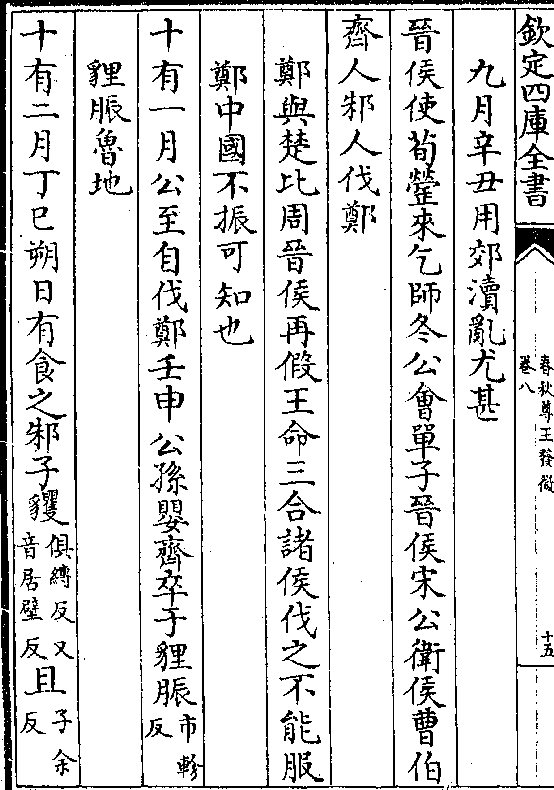 欽定四庫全書
春秋尊王發微
卷八
十五
九月辛丑用郊瀆亂尤甚
晉侯使荀罃來乞師冬公會單子晉侯宋公衛侯曹伯
齊人邾人伐鄭
鄭與楚比周晉侯再假王命三合諸侯伐之不能服
鄭中國不振可知也
十有一月公至自伐鄭壬申公孫嬰齊卒于貍脤市軫反
貍脤魯地
十有二月丁巳朔日有食之邾子貜俱縛反又音居壁反且子余反